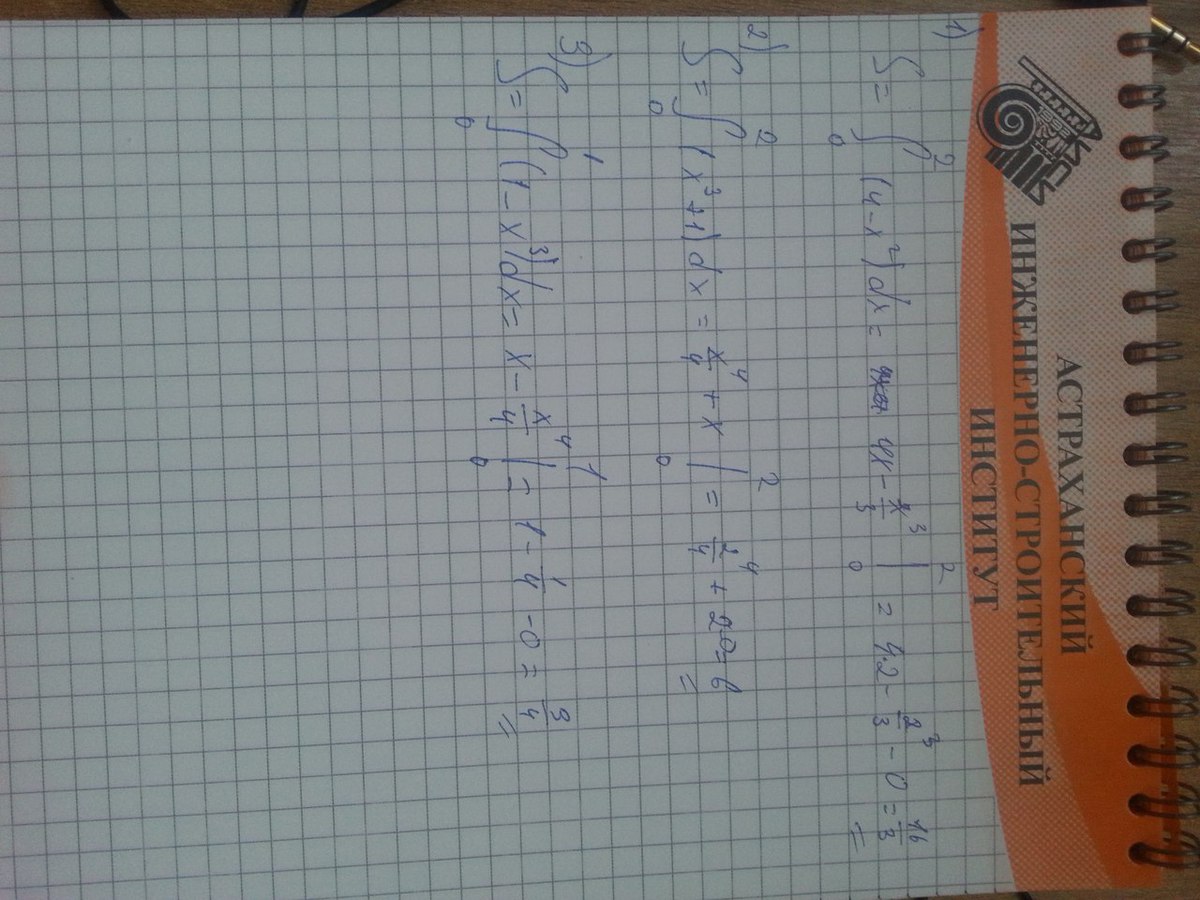 АСТРАХАНСКИЙ
ИНЖЕНЕРНО-СТРОИТЕЛЬНЫЙ
ИНСТИТУТ
1) S = ∫₀² (4-x²)dx = 4x - x³/3 |₀² = 4·2 - 2³/3 - 0 = 16/3
2) S = ∫₀² (x³+1)dx = x⁴/4 + x |₀² = 2⁴/4 + 2 - 0 = 6
3) S = ∫₀¹ (1-x³)dx = x - x⁴/4 |₀¹ = 1 - 1/4 - 0 = 3/4